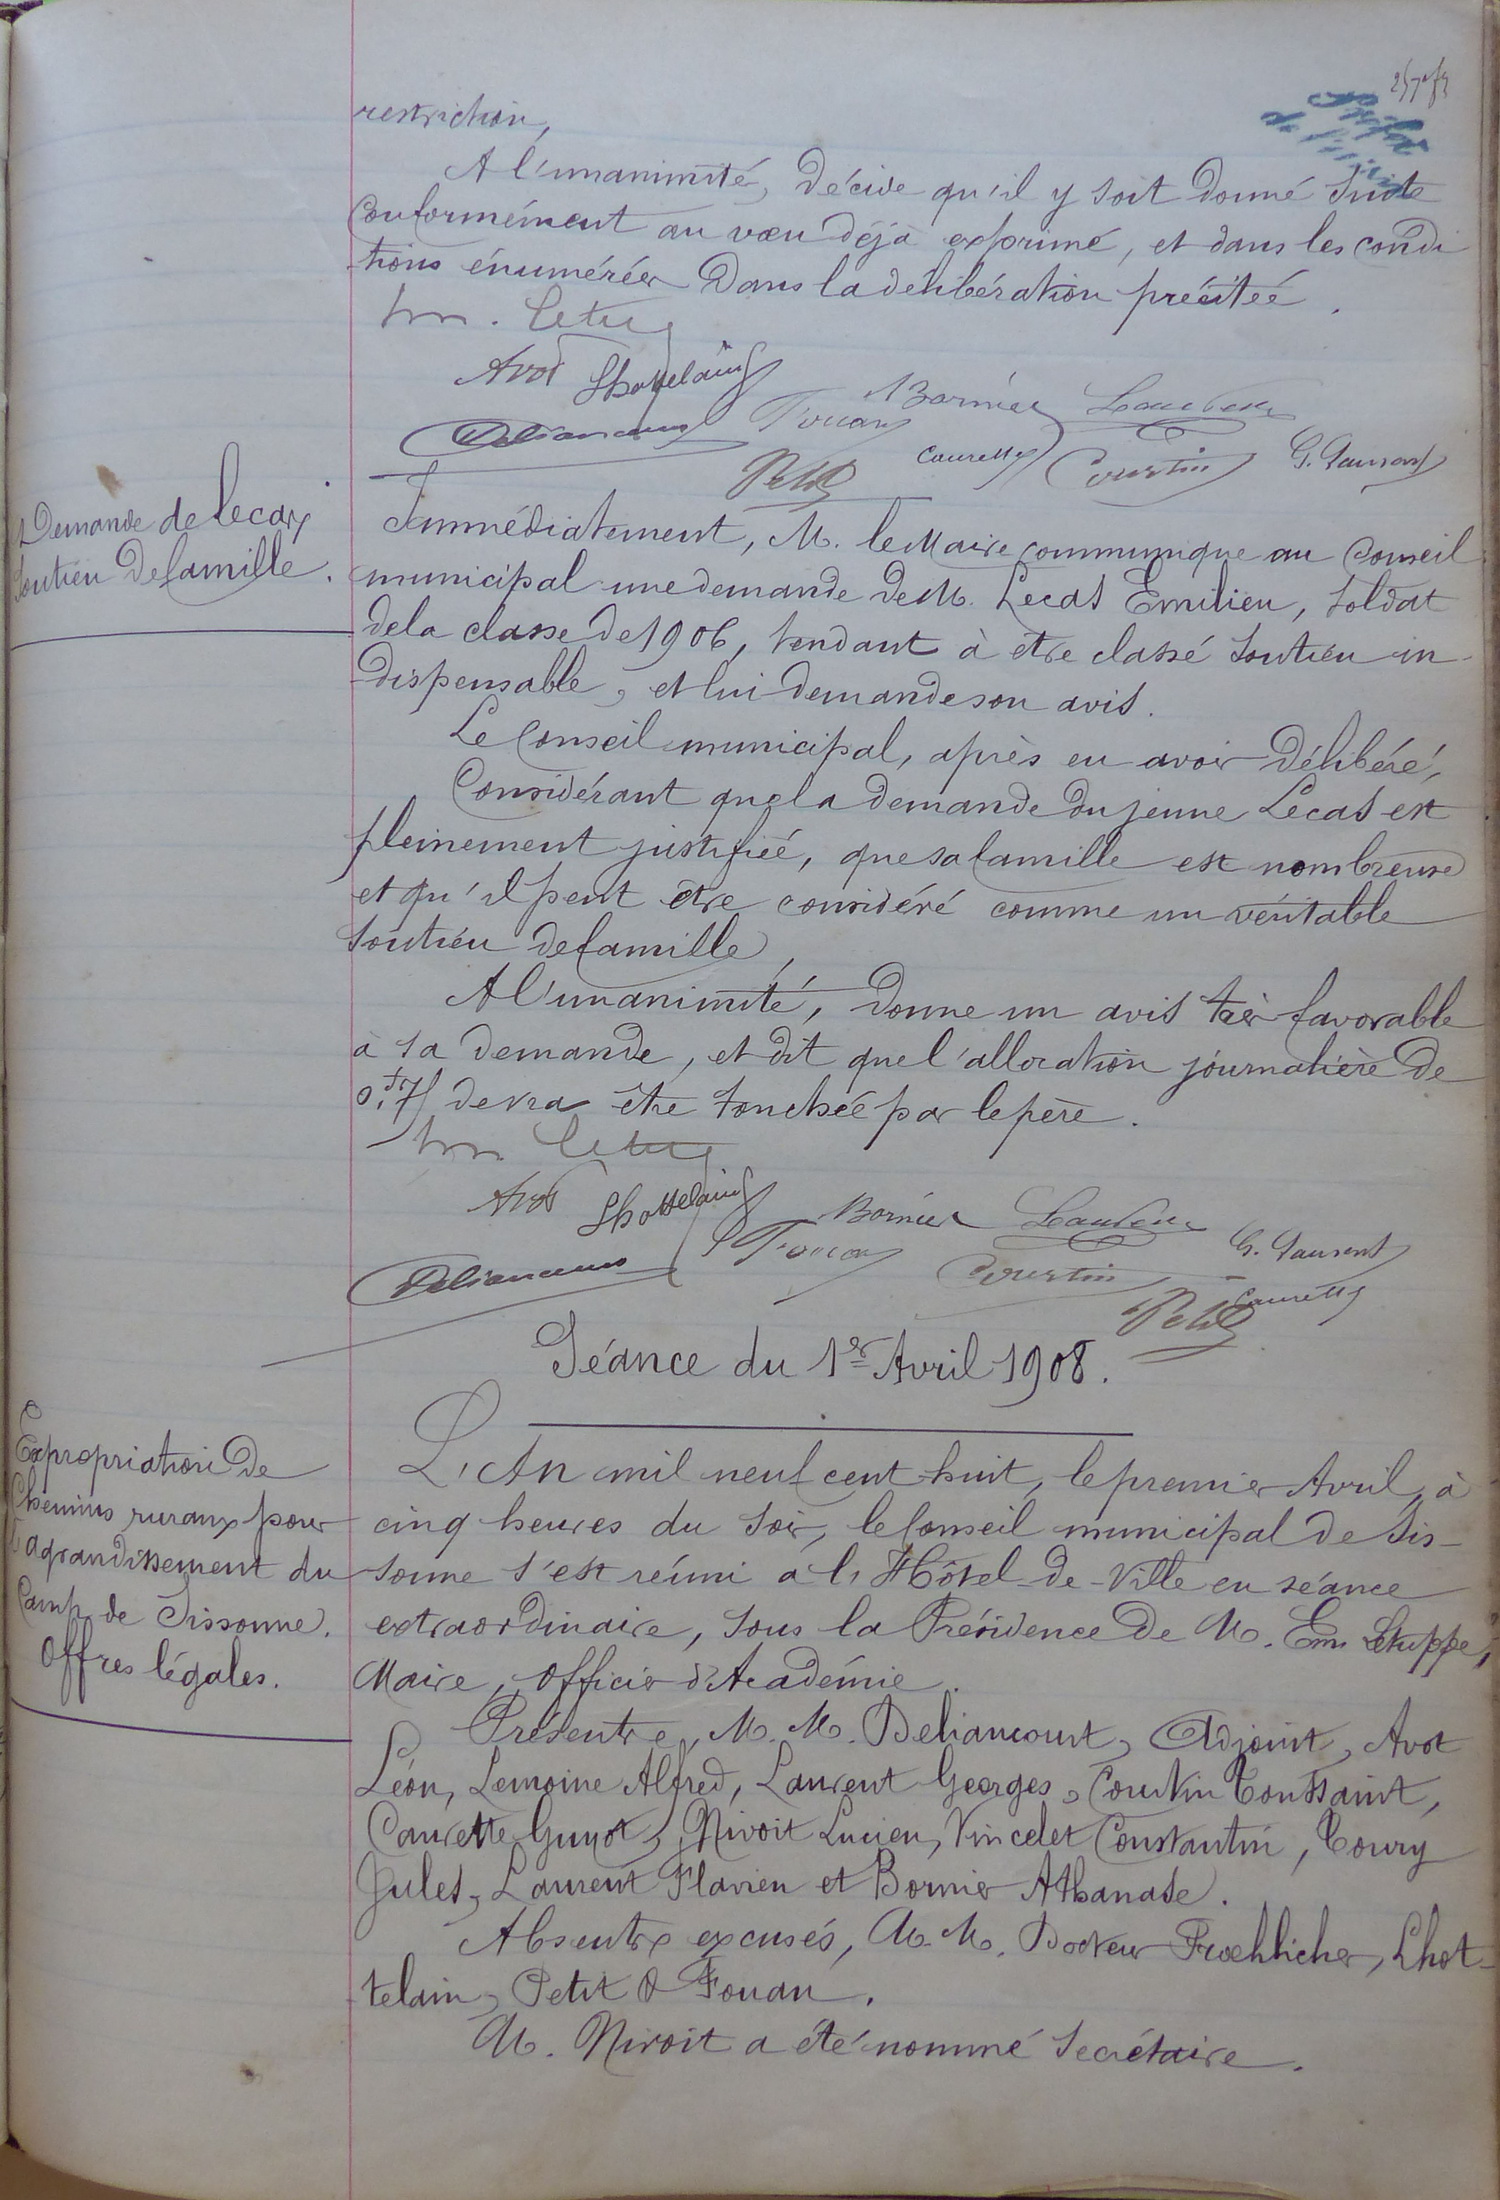 restriction,
A l'unanimité, décide qu'il y soit donné suite
conformément au vœu déjà exprimé, et dans les condi
tions énumérées dans la délibération précitée.
Avot Lhottelain Bornier
Deliancourt Fouan Caurette Courtin G. Laurent
Petit
Demande de Lecas,
soutien de famille.
Immédiatement, M. le Maire communique au Conseil
municipal une demande de M. Lecas Emilien, soldat
de la classe de 1906, tendant à être classé soutien in-
dispensable, et lui demande son avis.
Le Conseil municipal, après en avoir délibéré,
Considérant que la demande du jeune Lecas est
pleinement justifiée, que sa famille est nombreuse
et qu'il peut être considéré comme un véritable
soutien de famille,
A l'unanimité, donne un avis très favorable
à sa demande, et dit que l'allocation journalière de
devra être touchée par le père.
Avot Lhottelain Bornier
Deliancourt Fouan Courtin G. Laurent
Petit Caurette
Séance du 1er Avril 1908.
Expropriation de
Chemins ruraux pour
l'agrandissement du
Camp de Sissonne.
Offres légales.
L'An mil neuf cent huit, le premier Avril, à
cinq heures du soir, le Conseil municipal de Sis-
sonne s'est réuni à l'Hôtel-de-Ville en séance
extraordinaire, sous la Présidence de M. Em. Letuppe,
Maire, Officier d'Académie.
Présents, M. M. Deliancourt, Adjoint, Avot
Léon, Lemoine Alfred, Laurent Georges, Courtin Toussaint,
Caurette Guyot, Nivoit Lucien, Vincelet Constantin, Toury
Jules, Laurent Flavien et Bornier Athanase.
Absents excusés, M. M. Docteur Froehlicher, Lhot-
telain, Petit & Fouan.
M. Nivoit a été nommé secrétaire.